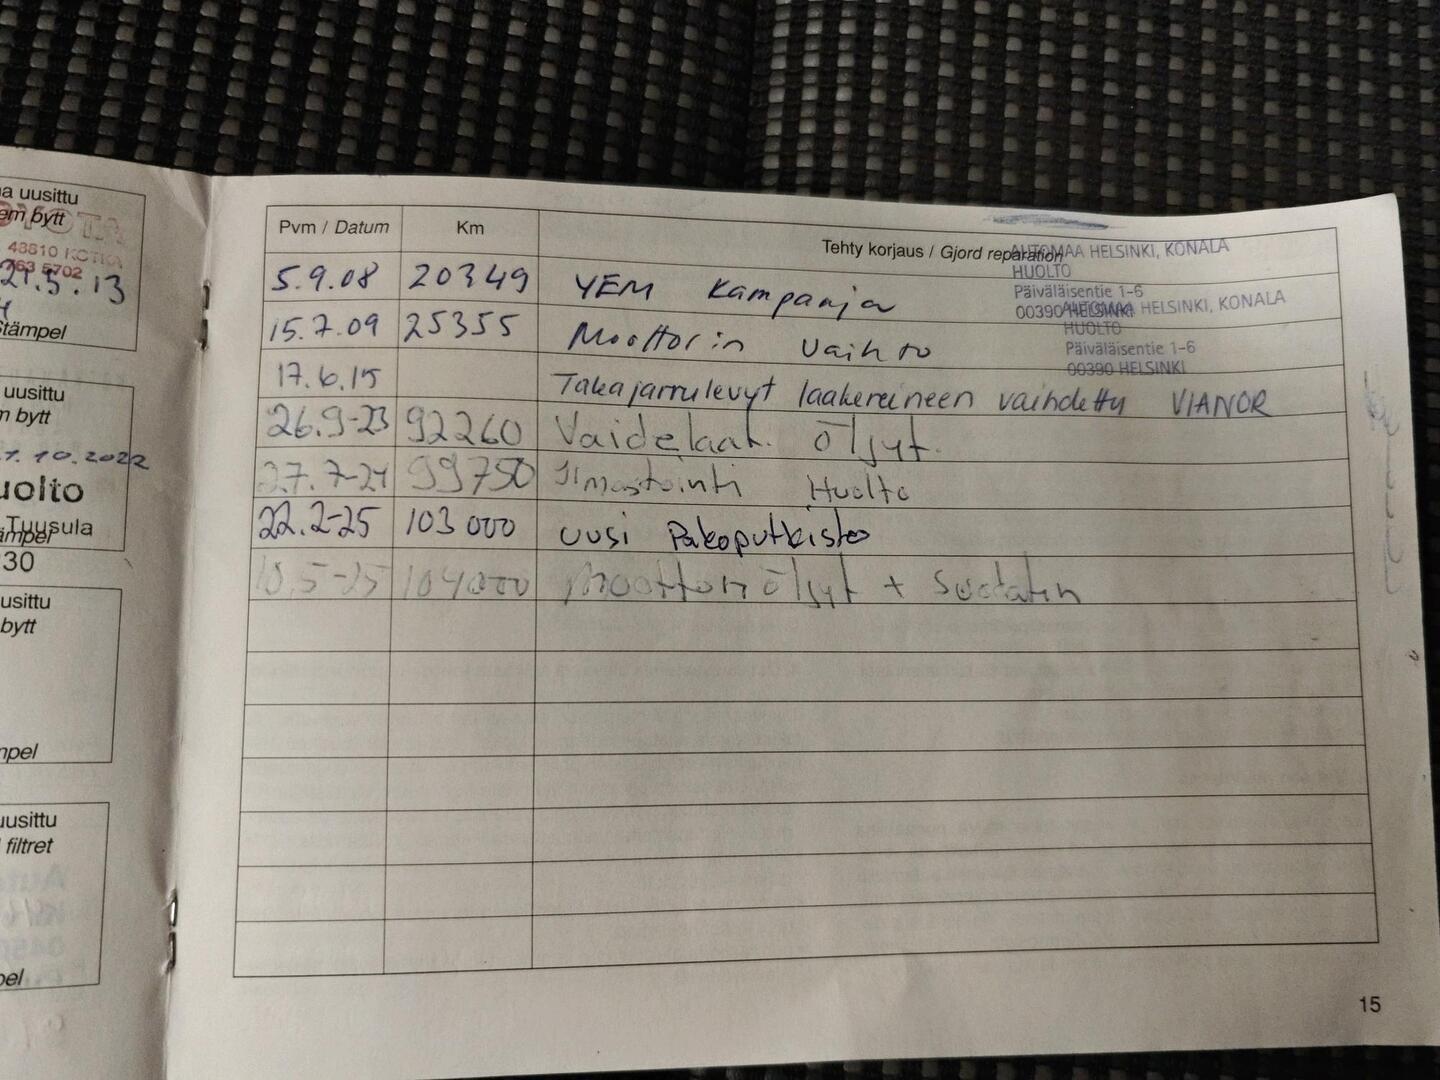 a uusittu
em bytt
TOYOTA
48810 KOTKA
763 5702
21.5.13
Stämpel
uusittu
m bytt
1.10.2022
uolto
Tuusula
ämpel
930
usittu
bytt
mpel
uusittu
filtret
pel
Pvm / Datum Km Tehty korjaus / Gjord reparation
AUTOMAA HELSINKI, KONALA
HUOLTO
Päiväläisentie 1-6
00390 HELSINKI
5.9.08 20349 YEM Kampanja
AUTOMAA HELSINKI, KONALA
HUOLTO
Päiväläisentie 1-6
00390 HELSINKI
15.7.09 25355 Moottorin vaihto
17.6.15 Takajarrulevyt laakereineen vaihdettu VIANOR
26.9-23 92260 Vaidelaat. öljyt.
27.7-24 99750 Ilmastointi Huolto
22.2-25 103000 uusi Pakoputkisto
10.5-25 104000 Moottoriöljyt + Suodatin
15